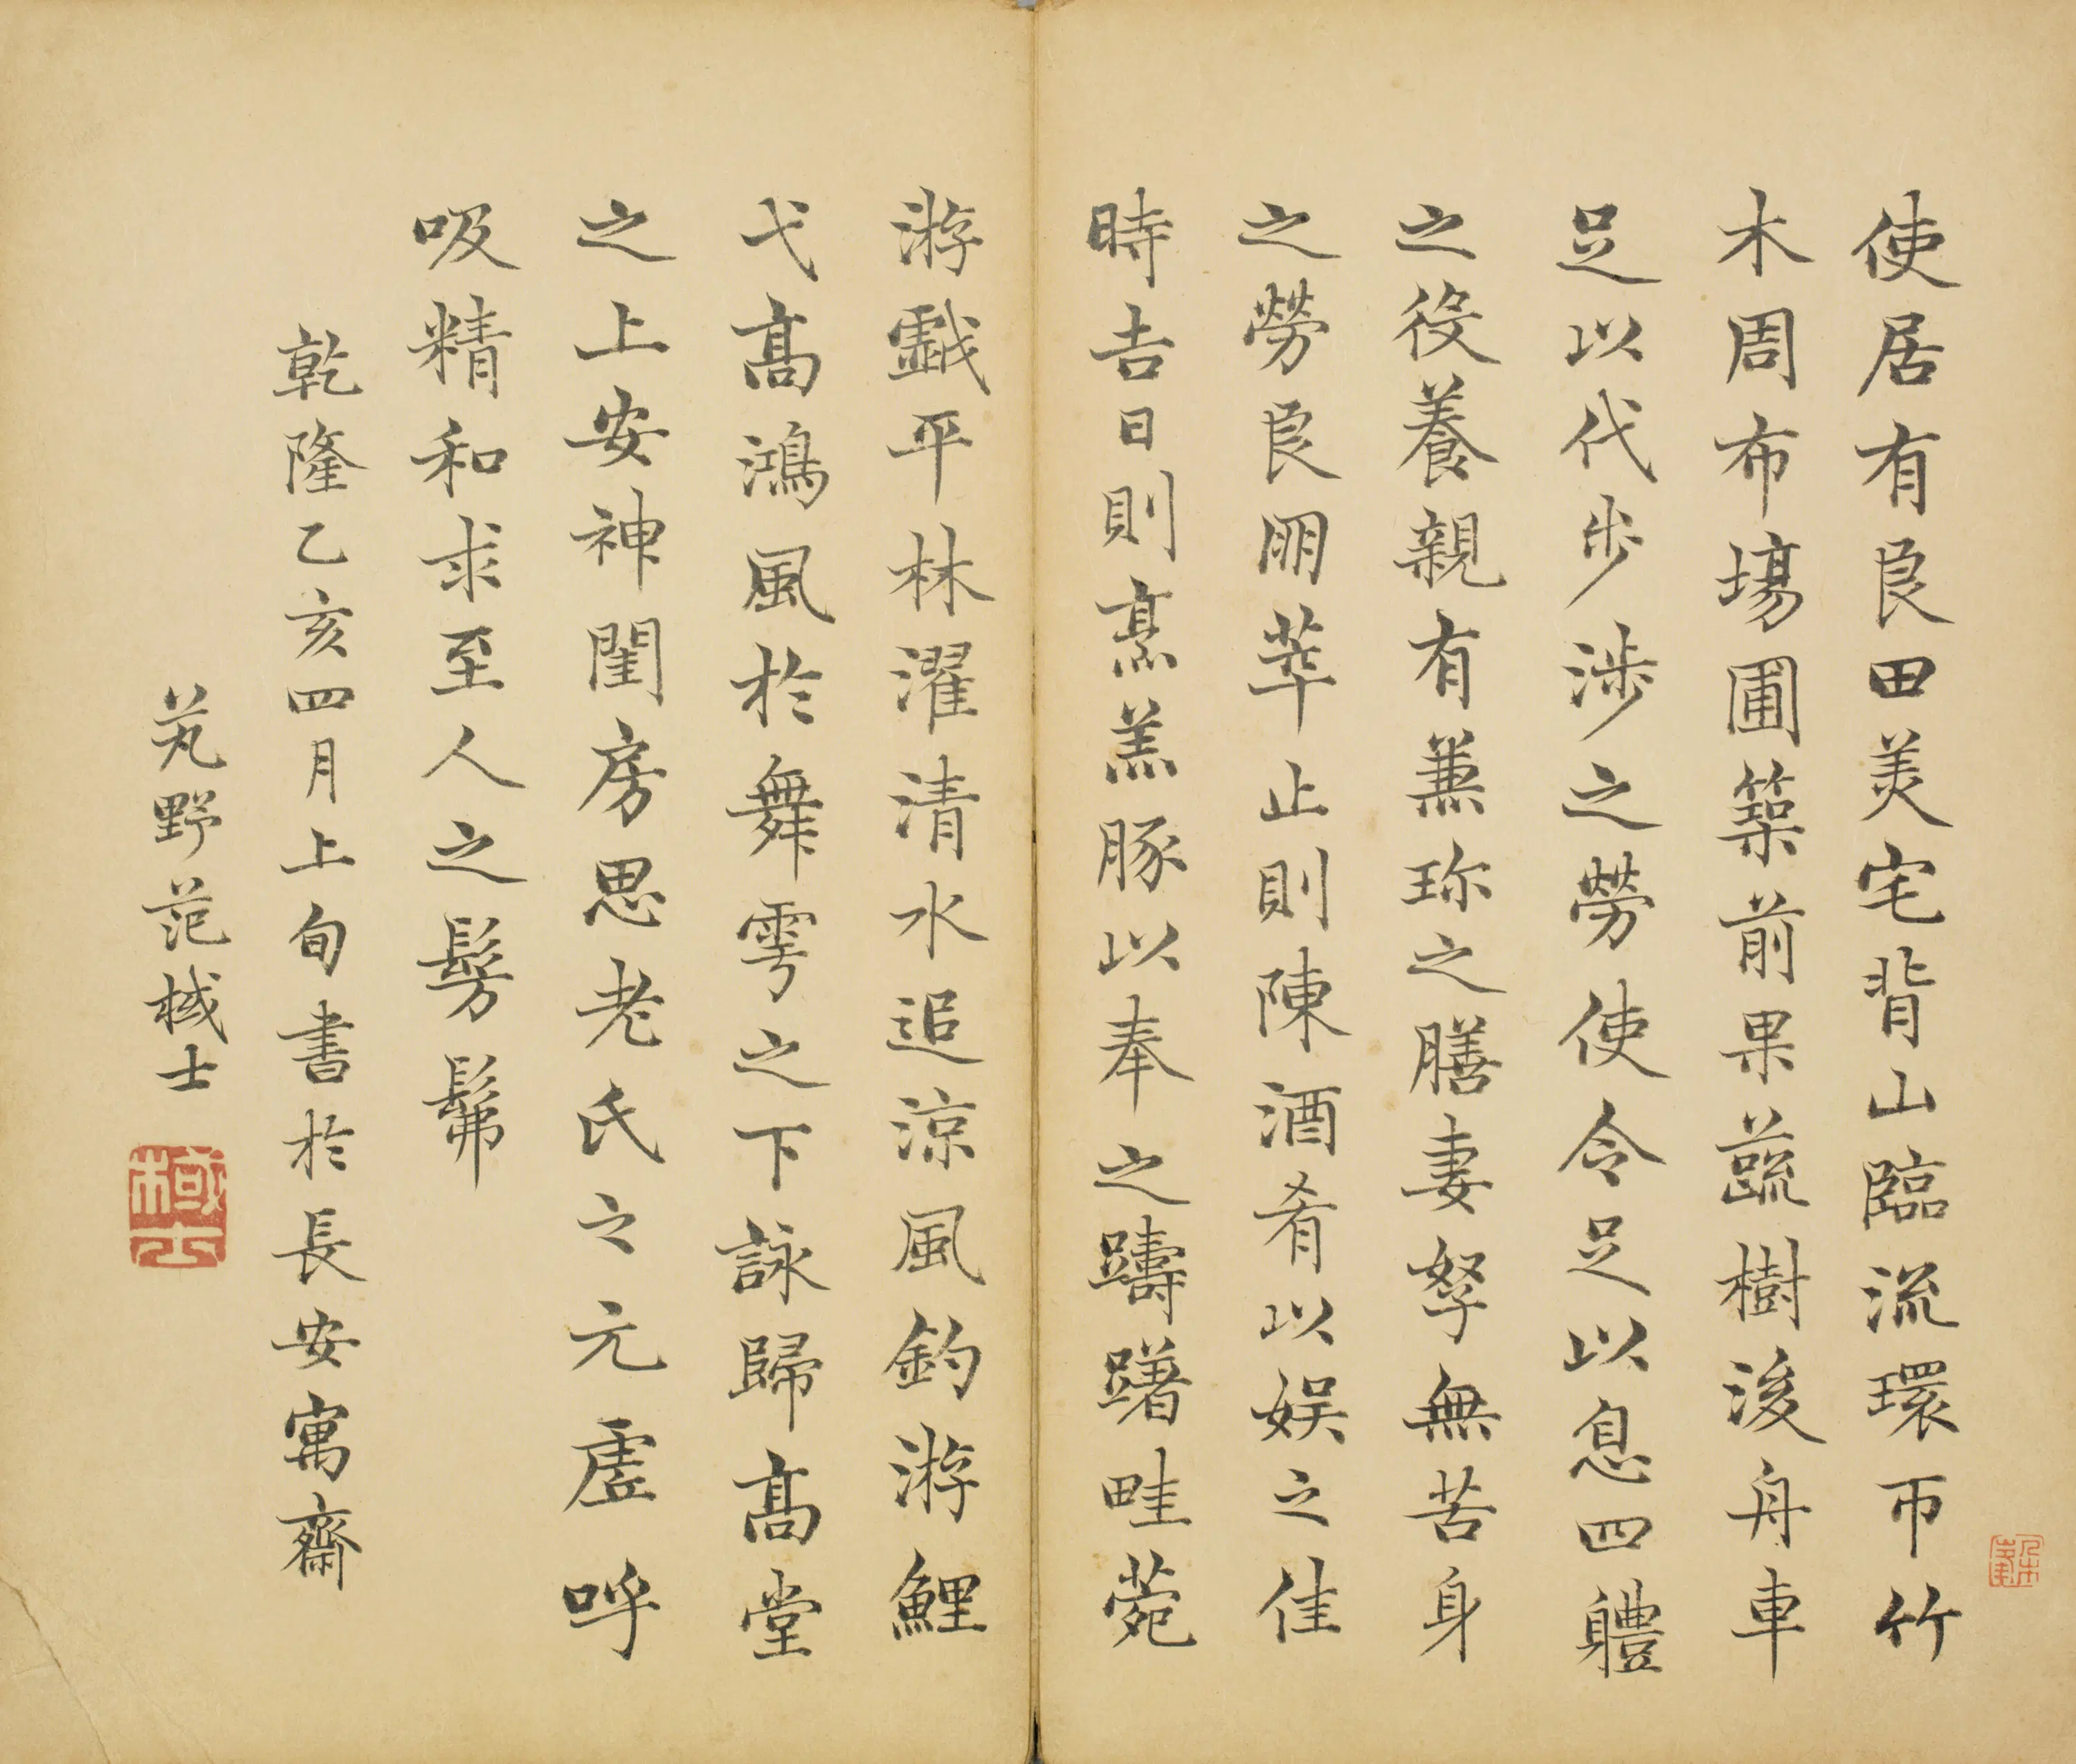 使居有良田美宅背山臨流環帀竹
木周布場圃築前果蔬樹後舟車
足以代步涉之勞使令足以息四體
之役養親有兼珍之膳妻孥無苦身
之勞良朋萃止則陳酒肴以娛之佳
時吉日則烹羔豚以奉之躊躇畦菀
游戲平林濯清水追涼風釣游鯉
弋高鴻風於舞雩之下詠歸高堂
之上安神閨房思老氏之元虛呼
吸精和求至人之髣髴
乾隆乙亥四月上旬書於長安寓齋
芄野范棫士
棫士